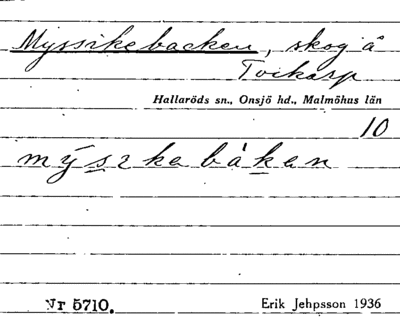 Myssikebacken, skog å
Tvekarp
Hallaröds sn., Onsjö hd., Malmöhus län
10
mýsıkabàkan
Nr 5710.
Erik Jehpsson 1936